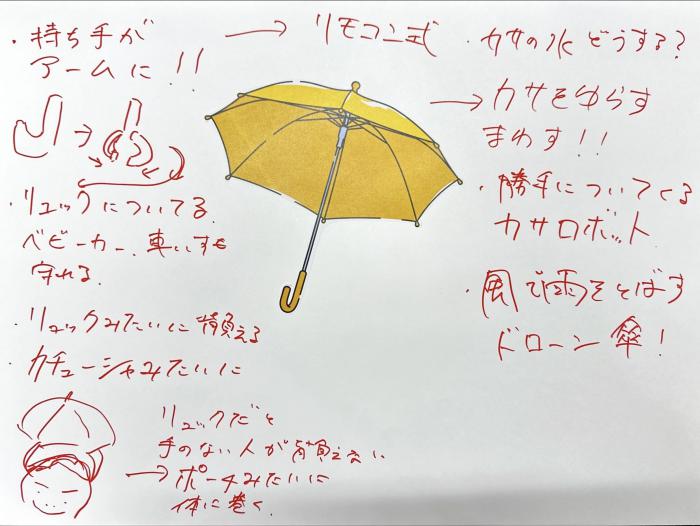 ・持ち手が
アームに!!
→ リモコン式
・リュックについてる
ベビーカー、車いすも
守れる。
・リュックみたいに背負える
・カチューシャみたいに
リュックだと
手のない人が背負えない
→ポーチみたいに
体に巻く。
・カサの水どうする?
→カサをゆらす
まわす!!
・勝手についてくる
カサロボット
・風で雨をとばす
ドローン傘!